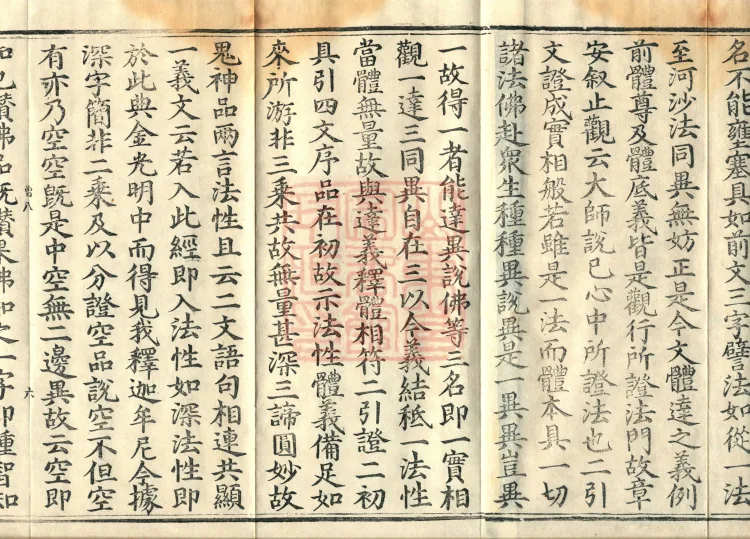 名不能壅塞具如前文三字譬法如從一法
至河沙法同異無妨正是今文體達之義例
前體尊及體底義皆是觀行所證法門故章
安叙止觀云大師說己心中所證法也二引
文證成實相般若雖是一法而體本具一切
諸法佛赴衆生種種異說異是一異異豈異
一故得一者能達異說佛等三名即一實相
觀一達三同異自在三以今義結秪一法性
當體無量故與達義釋體相符二引證二初
具引四文序品在初故示法性體義備足如
來所游非三乘共故無量甚深三諦圓妙故
鬼神品兩言法性且云二文語句相連共顯
一義文云若入此經即入法性如深法性即
於此典金光明中而得見我釋迦牟尼今據
深字簡非二乘及以分證空品說空不但空
有亦乃空空旣是中空無二邊異故云空即
六